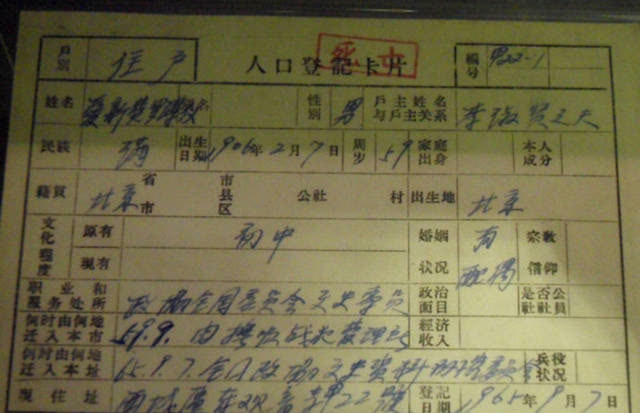 戶別 住戶 人口登記卡片 死亡 編号
姓名 愛新覺羅 性別 男 戶主姓名与戶主关系 李淑賢之夫
民族 滿 出生日期 1906年2月7日 周岁 59 家庭出身 本人成分
籍貫 北京 省市 市县区 公社 村 出生地 北京
文化程度 原有 初中 婚姻状况 有配偶 宗教信仰
現有
职业和服务处所 政協全国委員会文史專員 政治面目 是否公社社員
何时由何地迁入本市 59.9. 由撫順战犯管理所 經济收入
何时由何地迁入本址 65.9.7. 全国政協文史資料 委員会 兵役状况
現住址 西城 观音 22號 登記日期 1965年9月7日